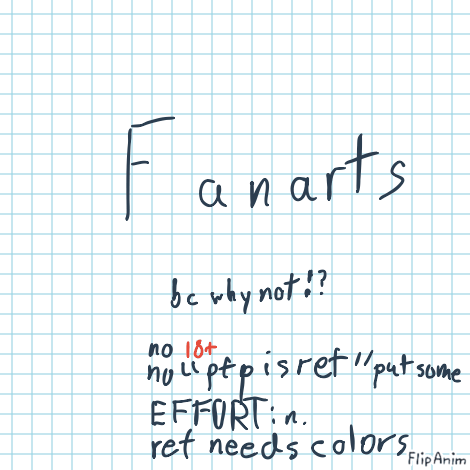 Fanarts
bc why not!?
no 18+
no "pfp is ref" put some
EFFORT in.
ref needs colors
FlipAnim